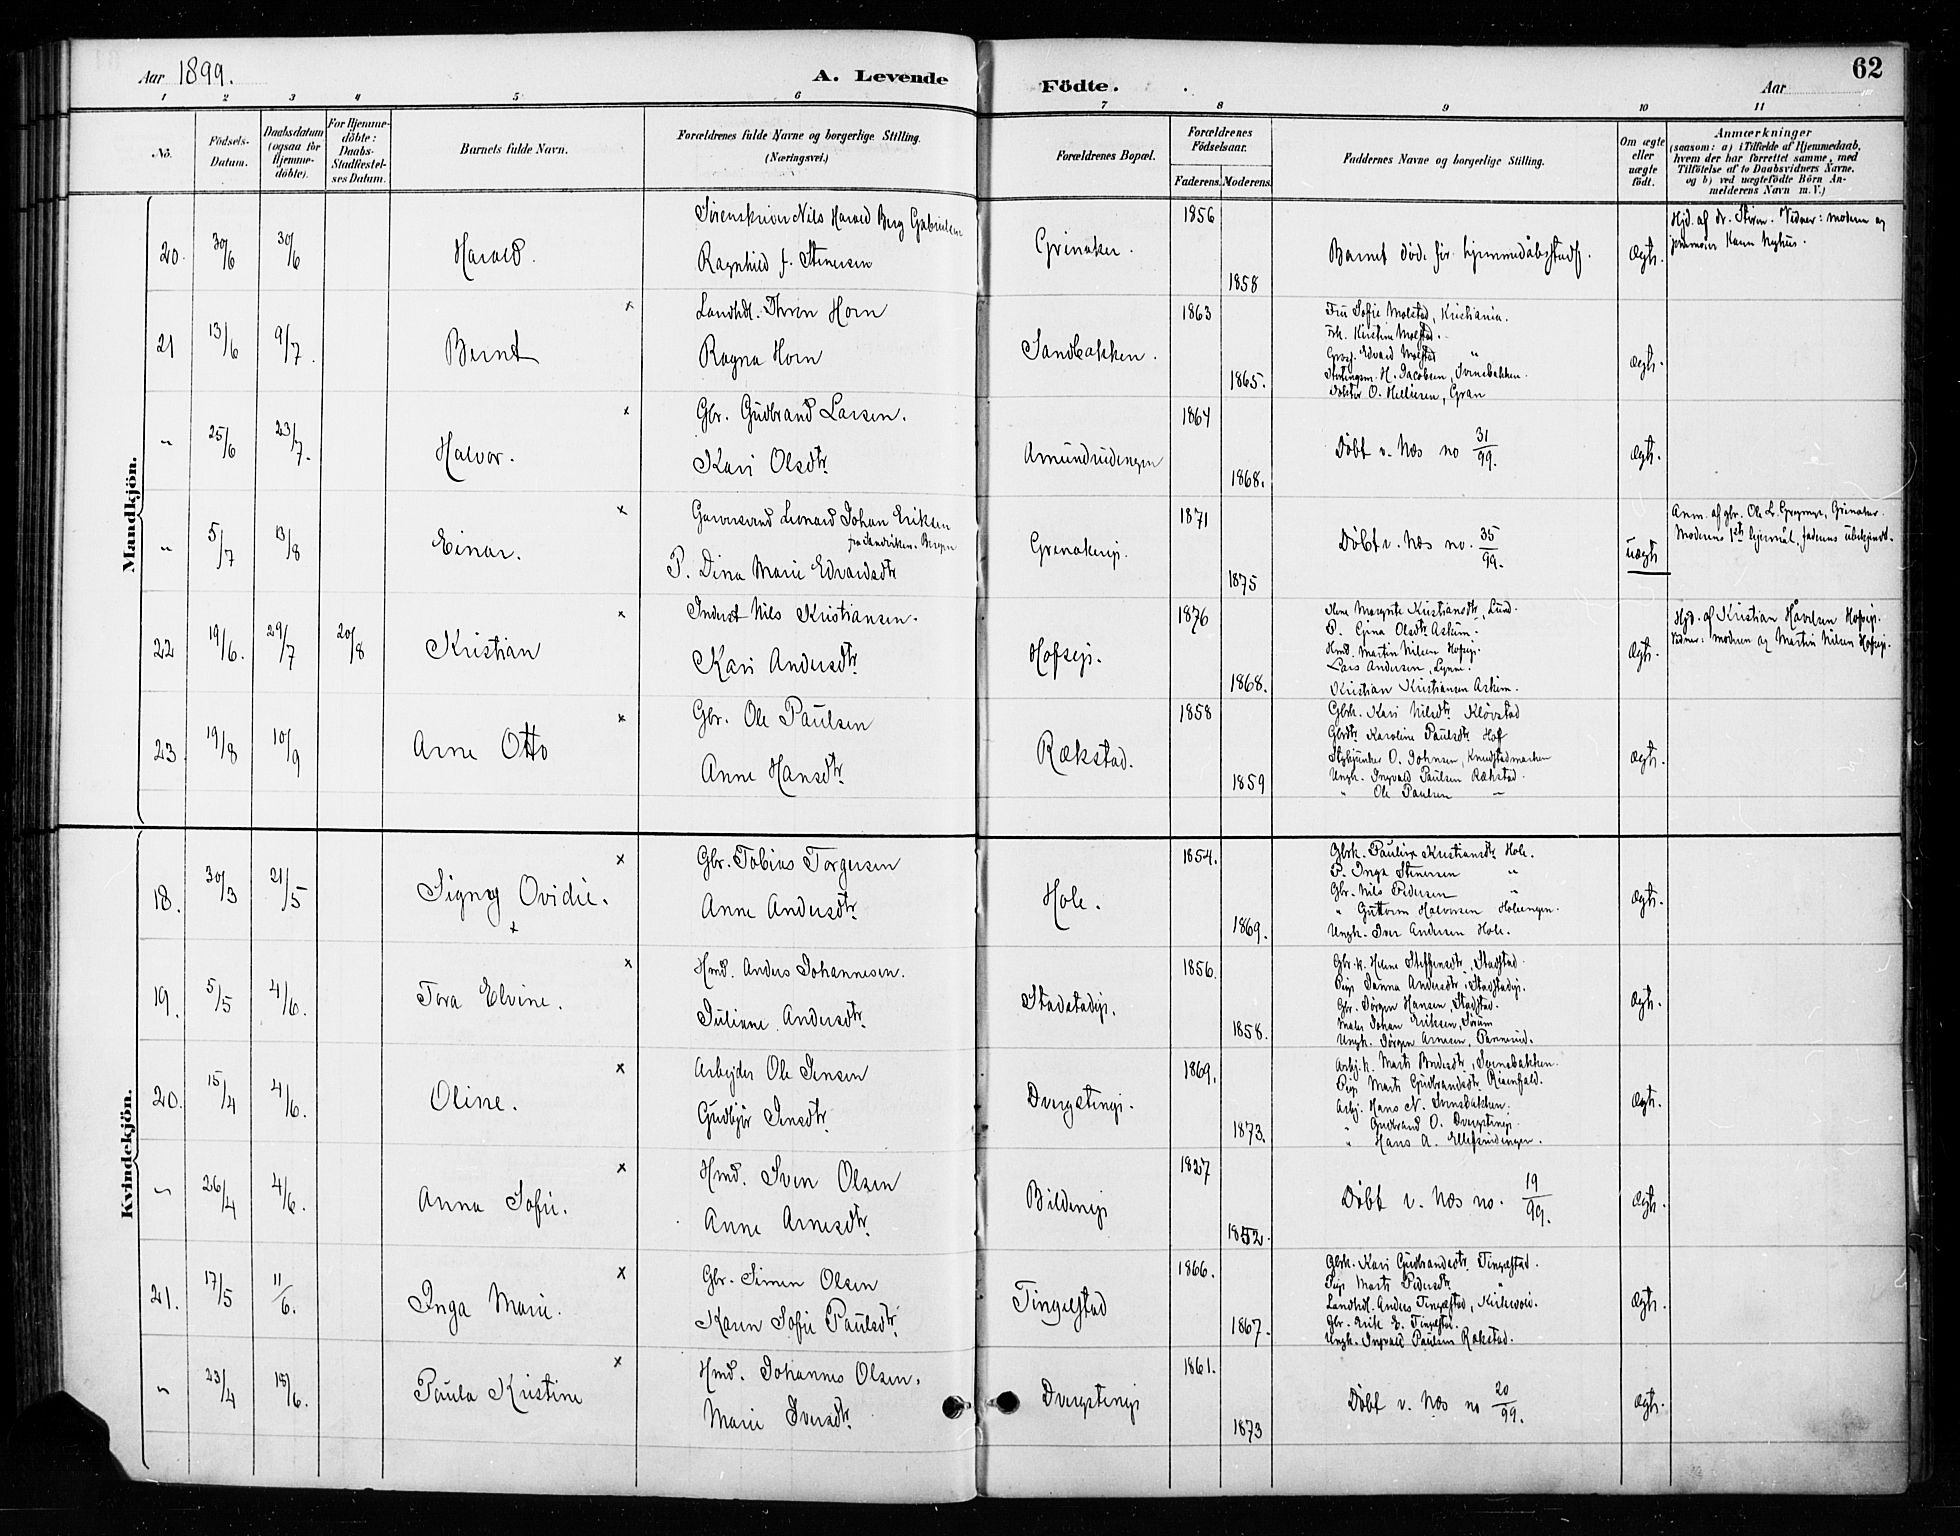 Aar 1899.
A. Levende Födte.
Aar
62
1 2 3 4 5 6 7 8 9 10 11
No.
Födsels-Datum.
Daabsdatum (ogsaa for Hjemme-döbte).
For Hjemme-döbte: Daabs-Stadfæstel-ses Datum.
Barnets fulde Navn.
Forældrenes fulde Navne og borgerlige Stilling. (Næringsvei.)
Forældrenes Bopæl.
Forældrenes Födselsaar.
Faderens. Moderens.
Faddernes Navne og borgerlige Stilling.
Om ægte eller uægte født.
Anmærkninger
(saasom: a) i Tilfælde af Hjemmedaab, hvem der har forrettet samme, med Tilföielse af to Daabsvidners Navne. og b) ved uægtefödte Börn Anmelderens Navn m. V.)
Mandkjön.
20. 30/6 30/6 Harald.
Sorenskriver Nils Harald Berg Gabrielsen
Ragnhild f. Stenersen
Grinaker. 1856 1858
Barnet døde før hjemmedåbsstadf.
Ægte.
Hjd. af dr. Vidner: moderen og
jormoder Karen Nyhus.
21 13/6 9/7. Bernt ×
Landhdl. Thron Horn
Ragna Horn
Sandbakken. 1863 1865.
Fru Sofie Molstad, Kristiania.
Frk. Kirstine Molstad. "
Gross. Edvard Molstad "
Stortingsm. H. Jacobsen, Svinsbakken.
Doktor O. Helliesen, Gran
Ægte.
" 25/6 23/7. Halvor. ×
Gbr. Gudbrand Larsen.
Kari Olsdtr.
Amundrudengen 1864 1868.
Døbt v. Næs no 31/99.
Ægte.
" 5/7 13/8 Einar. ×
Garversvend Leonard Johan Eriksen
P. Dina Marie Edvardsdtr
Grinakerej. 1871 1875
Døbt v. Næs no. 35/99.
uægte
Anm. af gbr. Ole L. Gregersen, Grinaker.
Moderens 1ste lejermål, faderens ubekjendt.
22 19/6. 29/7 20/8 Kristian ×
Inderst Nils Kristiansen.
Kari Andersdtr
Hofsej. 1876 1868.
Margrete Kristiansdtr, Lund.
P. Gina Olsdtr Askim.
Hmd. Martin Nilsen Hofsej.
Lars Andersen, Lynne.
Kristian Kristiansen Askim.
Ægte.
Hjd. af Kristian Håvelsen Hofsej.
Vidner: moderen og Martin Nilsen Hofsej.
23 19/8 10/9 Arne Otto ×
Gbr. Ole Paulsen
Anne Hansdtr.
Rækstad. 1858 1859
Gbrk. Kari Nilsdtr. Kløvstad
Gbrdtr. Karoline Paulsdtr. Hof
Stykjunker O. Johnsen, Knudstadmarken
Ungk. Ingvald Paulsen Rækstad.
" Ole Paulsen "
Ægte.
Kvindekjön.
18. 30/3 21/5 Signy Ovidie. ×
Gbr. Tobias Torgersen
Anne Andersdtr.
Hole. 1854. 1869.
Gbrk. Pauline Kristiansdtr. Hole.
P. Inga Stenersen "
Gbr. Nils Pedersen "
" Guttorm Halvorsen Holeengen.
Ungk. Iver Andersen Hole.
Ægte.
19. 5/5 4/6. Tora Elvine. ×
Hmd. Anders Johannesen.
Juliane Andersdtr.
Stadstadej. 1856. 1858.
Gbr.k. Helene Steffensdtr., Stadstad.
Pige Janna Andersdtr., Stadstadej.
Gbr. Jørgen Hansen, Stadstad.
Maler Johan Eriksen, Sørum
Ungk. Jørgen Arnesen,
Ægte.
20. 15/4 4/6. Oline. ×
Arbejder Ole Jensen
Gudbjør Jensdtr.
Dvergstenej. 1869. 1873.
Arbj.k. Marte Svinsbakken.
Pige Marte Gudbrandsdtr.
Arbj. Hans N. Svinsbakken.
" Gudbrand O. Dvergstenej.
" Hans A. Ellefsrudengen.
Ægte.
" 26/4 4/6. Anna Sofie. ×
Hmd. Sven Olsen
Anne Arnesdtr.
Bildenej 1827 1852.
Døbt v. Næs no. 19/99.
Ægte.
21. 17/5 11/6. Inga Marie. ×
Gbr. Simen Olsen
Karen Sofie Paulsdtr.
Tingelstad 1866. 1867.
Gbrk. Kari Gudbrandsdtr. Tingelstad.
Pige Marte Pedersdtr. "
Landhdl. Anders Tingelstad, Kirkevold.
Gbr. Erik E. Tingelstad.
Ungk. Ingvald Paulsen Rækstad.
Ægte.
" 23/4 18/6. Paula Kristine ×
Hmd. Johannes Olsen.
Marie Iversdtr.
Dvergstenej 1861. 1873
Døbt v. Næs no 20/99.
Ægte.